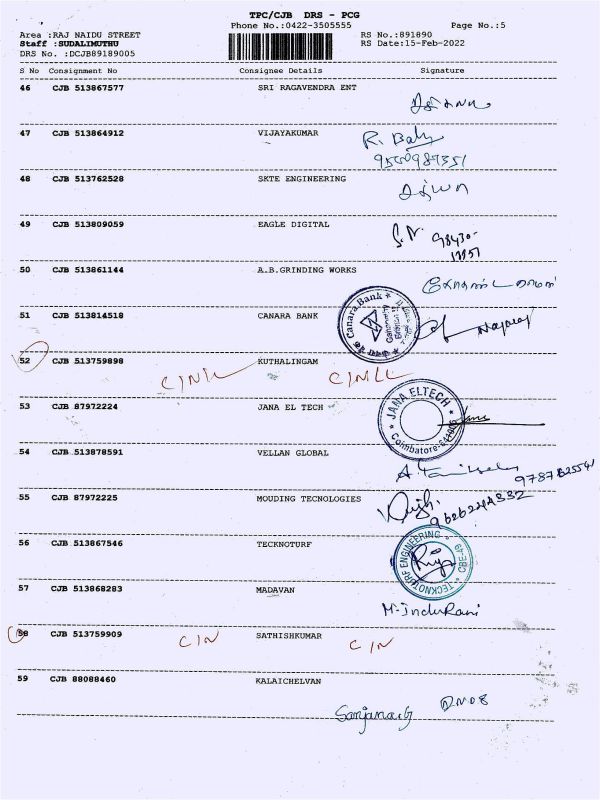 TPC/CJB DRS - PCG
Phone No.:0422-3505555 Page No.:5
Area :RAJ NAIDU STREET RS No.:891890
Staff :SUDALIMUTHU RS Date:15-Feb-2022
DRS No. :DCJB89189005
S No Consignment No Consignee Details Signature
46 CJB 513867577 SRI RAGAVENDRA ENT
47 CJB 513864912 VIJAYAKUMAR R. Baby
48 CJB 513762528 SKTE ENGINEERING
49 CJB 513809059 EAGLE DIGITAL S.N.
50 CJB 513861144 A.B.GRINDING WORKS
51 CJB 513814518 CANARA BANK Canara Bank
52 CJB 513759898 KUTHALINGAM
53 CJB 87972224 JANA EL TECH JANA ELTECH Coimbatore
54 CJB 513878591 VELLAN GLOBAL
55 CJB 87972225 MOUDING TECNOLOGIES
56 CJB 513867546 TECKNOTURF TECKNOTURF ENGINEERING CBE-49
57 CJB 513868283 MADAVAN
M. InduRani
58 CJB 513759909 CIN SATHISHKUMAR CIN
59 CJB 88088460 KALAICHELVAN
Sanjana.G